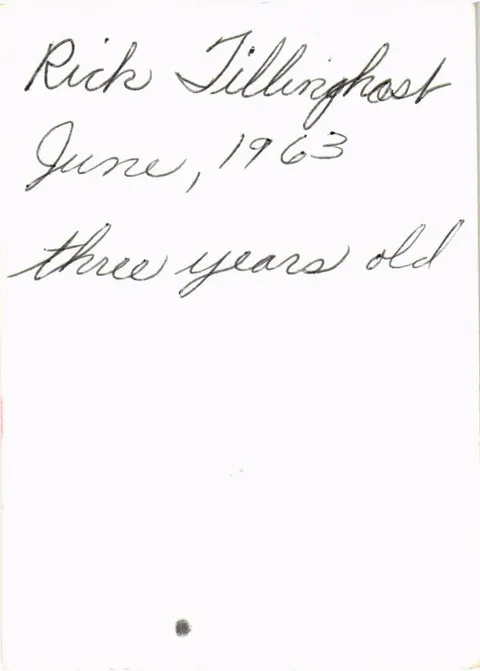 Rick Tillinghast
June, 1963
three years old